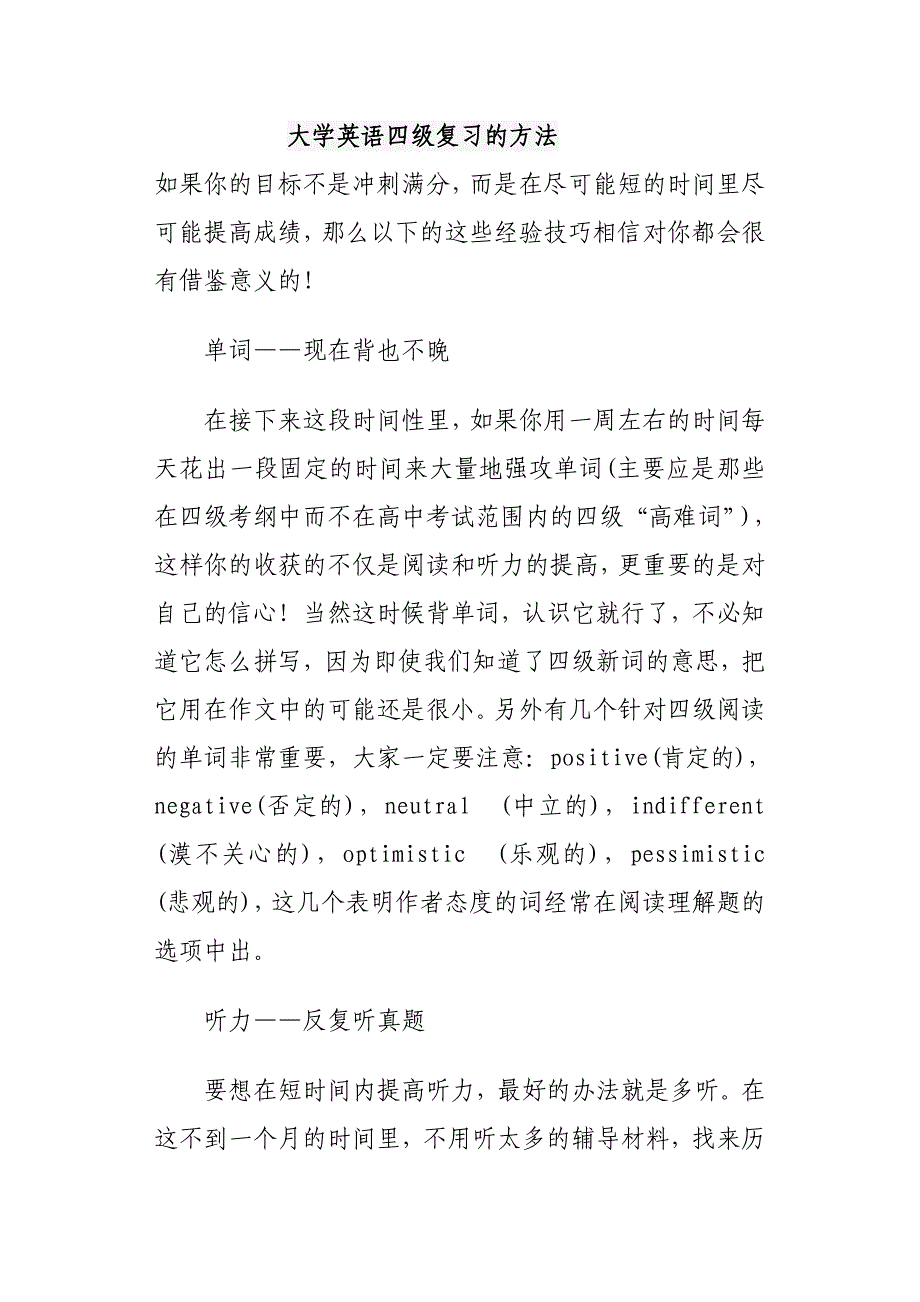 大学英语四级复习的方法
如果你的目标不是冲刺满分，而是在尽可能短的时间里尽
可能提高成绩，那么以下的这些经验技巧相信对你都会很
有借鉴意义的！
单词——现在背也不晚
在接下来这段时间性里，如果你用一周左右的时间每
天花出一段固定的时间来大量地强攻单词(主要应是那些
在四级考纲中而不在高中考试范围内的四级“高难词”)，
这样你的收获的不仅是阅读和听力的提高，更重要的是对
自己的信心！当然这时候背单词，认识它就行了，不必知
道它怎么拼写，因为即使我们知道了四级新词的意思，把
它用在作文中的可能还是很小。另外有几个针对四级阅读
的单词非常重要，大家一定要注意：positive(肯定的)，
negative(否定的)，neutral (中立的)，indifferent
(漠不关心的)，optimistic (乐观的)，pessimistic
(悲观的)，这几个表明作者态度的词经常在阅读理解题的
选项中出。
听力——反复听真题
要想在短时间内提高听力，最好的办法就是多听。在
这不到一个月的时间里，不用听太多的辅导材料，找来历